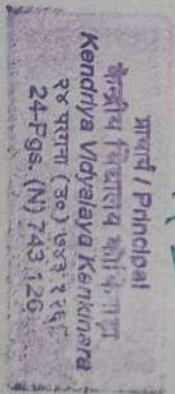 प्राचार्य / Principal
केन्द्रीय विद्यालय
Kendriya Vidyalaya Kankinara
२४ परगना (उ०) ७४३ १२६
24-Pgs. (N) 743 126